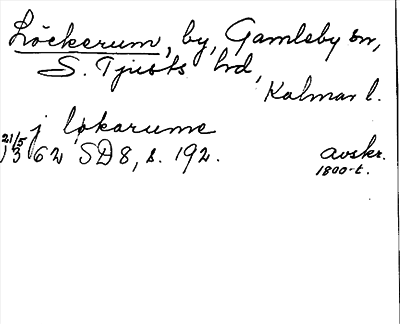 Löckerum, by, Gamleby sn,
S. Tjusts hd,
Kalmar l.
j løkarume
21/5
1362 SD 8, s. 192.
avskr.
1800-t.